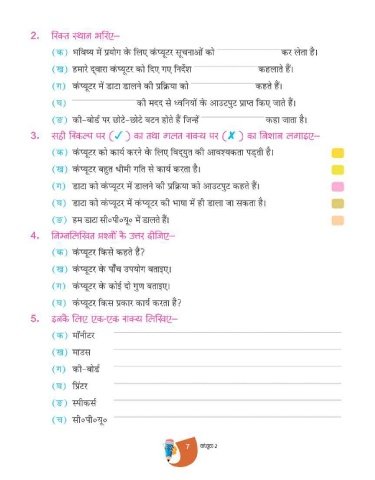 2. रिक्त स्थान भरिए–
(क) भविष्य में प्रयोग के लिए कंप्यूटर सूचनाओं को ____________ कर लेता है।
(ख) हमारे द्वारा कंप्यूटर को दिए गए निर्देश ____________ कहलाते हैं।
(ग) कंप्यूटर में डाटा डालने की प्रक्रिया को ____________ कहते हैं।
(घ) ____________ की मदद से ध्वनियों के आउटपुट प्राप्त किए जाते हैं।
(ङ) की-बोर्ड पर छोटे-छोटे बटन होते हैं जिन्हें ____________ कहा जाता है।
3. सही विकल्प पर (✓) का तथा गलत वाक्य पर (✗) का निशान लगाइए–
(क) कंप्यूटर को कार्य करने के लिए विद्युत की आवश्यकता पड़ती है।
(ख) कंप्यूटर बहुत धीमी गति से कार्य करता है।
(ग) डाटा को कंप्यूटर में डालने की प्रक्रिया को आउटपुट कहते हैं।
(घ) डाटा को कंप्यूटर में कंप्यूटर की भाषा में ही डाला जा सकता है।
(ङ) हम डाटा सी०पी०यू० में डालते हैं।
4. निम्नलिखित प्रश्नों के उत्तर दीजिए–
(क) कंप्यूटर किसे कहते हैं?
(ख) कंप्यूटर के पाँच उपयोग बताइए।
(ग) कंप्यूटर के कोई दो गुण बताइए।
(घ) कंप्यूटर किस प्रकार कार्य करता है?
5. इनके लिए एक-एक वाक्य लिखिए–
(क) मॉनीटर
(ख) माउस
(ग) की-बोर्ड
(घ) प्रिंटर
(ङ) स्पीकर्स
(च) सी०पी०यू०
7 कंप्यूटर-2